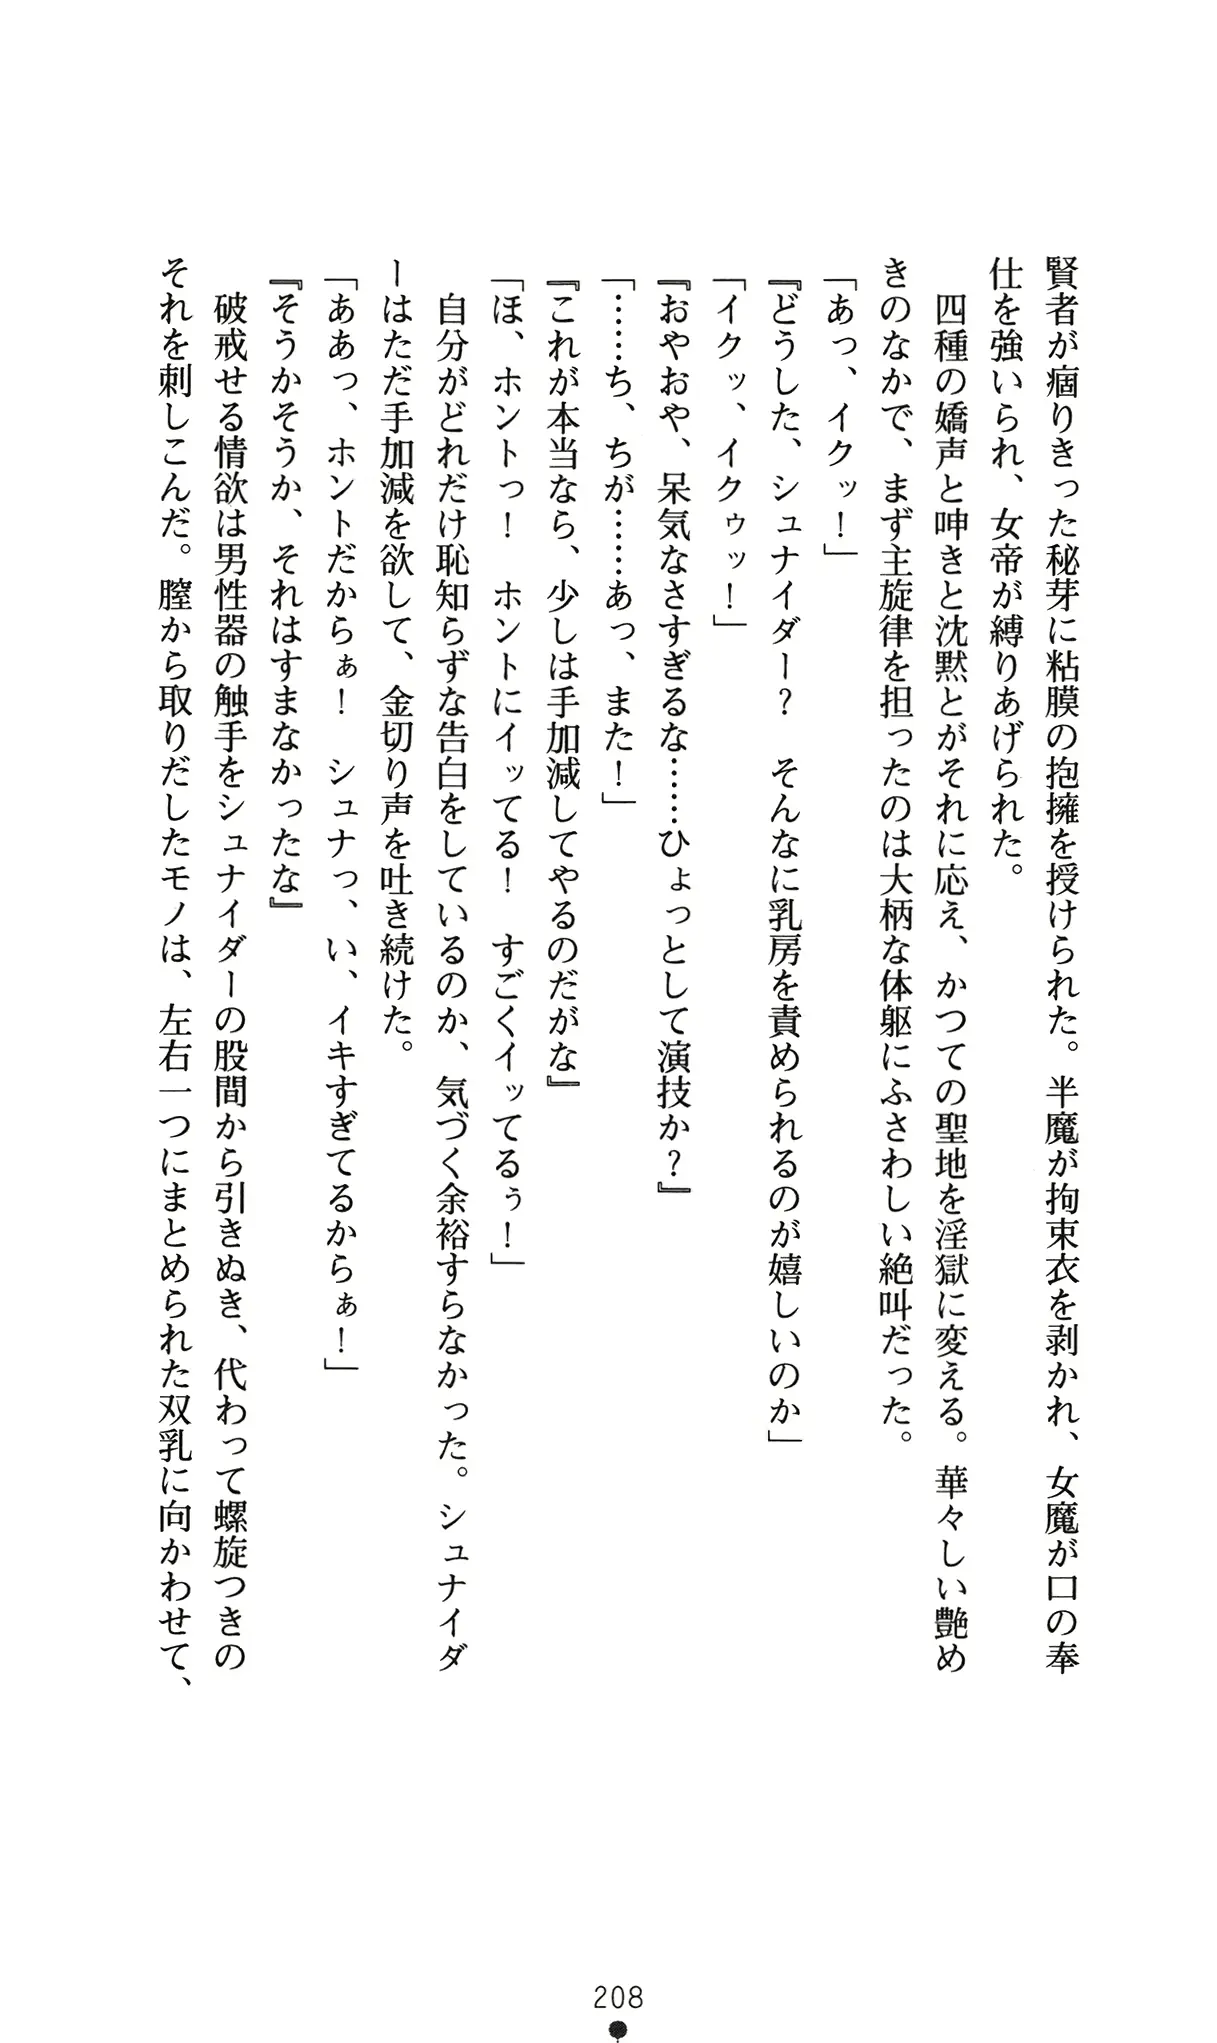 賢者が痼りきった秘芽に粘膜の抱擁を授けられた。半魔が拘束衣を剥かれ、女魔が口の奉
仕を強いられ、女帝が縛りあげられた。
　四種の嬌声と呻きと沈黙とがそれに応え、かつての聖地を淫獄に変える。華々しい艶め
きのなかで、まず主旋律を担ったのは大柄な体躯にふさわしい絶叫だった。
「あっ、イクッ！」
『どうした、シュナイダー？　そんなに乳房を責められるのが嬉しいのか」
「イクッ、イクゥッ！」
『おやおや、呆気なさすぎるな……ひょっとして演技か？』
「……ち、ちが……あっ、また！」
『これが本当なら、少しは手加減してやるのだがな』
「ほ、ホントっ！　ホントにイッてる！　すごくイッてるぅ！」
　自分がどれだけ恥知らずな告白をしているのか、気づく余裕すらなかった。シュナイダ
ーはただ手加減を欲して、金切り声を吐き続けた。
「ああっ、ホントだからぁ！　シュナっ、い、イキすぎてるからぁ！」
『そうかそうか、それはすまなかったな』
　破戒せる情欲は男性器の触手をシュナイダーの股間から引きぬき、代わって螺旋つきの
それを刺しこんだ。膣から取りだしたモノは、左右一つにまとめられた双乳に向かわせて、
208